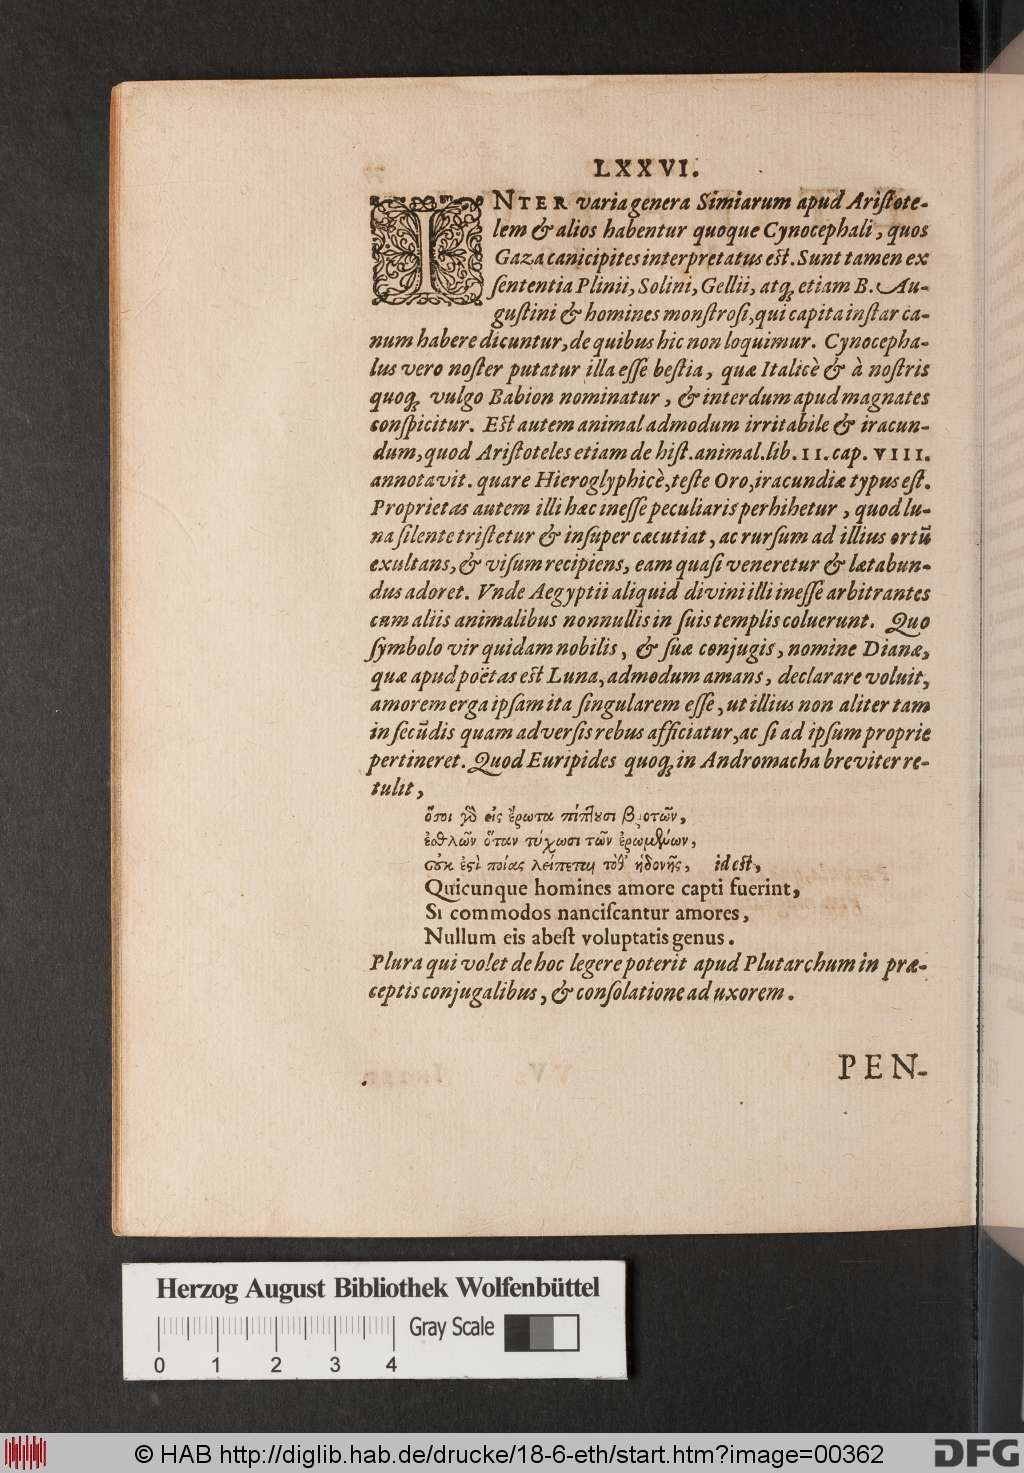 LXXVI.
INTER varia genera Simiarum apud Ariſtote-
lem & alios habentur quoque Cynocephali, quos
Gaza canicipites interpretatus eſt. Sunt tamen ex
ſententia Plinii, Solini, Gellii, atq; etiam B. Au-
guſtini & homines monſtroſi, qui capita inſtar ca-
num habere dicuntur, de quibus hic non loquimur. Cynocepha-
lus vero noſter putatur illa eſſe beſtia, quæ Italicè & à noſtris
quoq; vulgo Babion nominatur, & interdum apud magnates
conſpicitur. Eſt autem animal admodum irritabile & iracun-
dum, quod Ariſtoteles etiam de hiſt. animal. lib. II. cap. VIII.
annotavit. quare Hieroglyphicè, teſte Oro, iracundiæ typus eſt.
Proprietas autem illi hæc ineſſe peculiaris perhihetur, quod lu-
na ſilente triſtetur & inſuper cæcutiat, ac rurſum ad illius ortũ
exultans, & viſum recipiens, eam quaſi veneretur & lætabun-
dus adoret. Vnde Aegyptii aliquid divini illi ineſſe arbitrantes
cum aliis animalibus nonnullis in ſuis templis coluerunt. Quo
ſymbolo vir quidam nobilis, & ſuæ conjugis, nomine Dianæ,
quæ apud poëtas eſt Luna, admodum amans, declarare voluit,
amorem erga ipſam ita ſingularem eſſe, ut illius non aliter tam
in ſecũdis quam adverſis rebus afficiatur, ac ſi ad ipſum proprie
pertineret. Quod Euripides quoq; in Andromacha breviter re-
tulit,
ὅσοι γὸ εἰς ἔρωτα πίπτουσι βροτῶν,
ἐσθλῶν ὅταν τύχωσι τῶν ἐρωμένων,
οὐκ ἐστὶ ποίας λείπεται τόδ' ἡδονῆς, id eſt,
Quicunque homines amore capti fuerint,
Si commodos nanciſcantur amores,
Nullum eis abeſt voluptatis genus.
Plura qui volet de hoc legere poterit apud Plutarchum in præ-
ceptis conjugalibus, & conſolatione ad uxorem.
PEN-
Herzog August Bibliothek Wolfenbüttel
Gray Scale
0 1 2 3 4
© HAB http://diglib.hab.de/drucke/18-6-eth/start.htm?image=00362
DFG